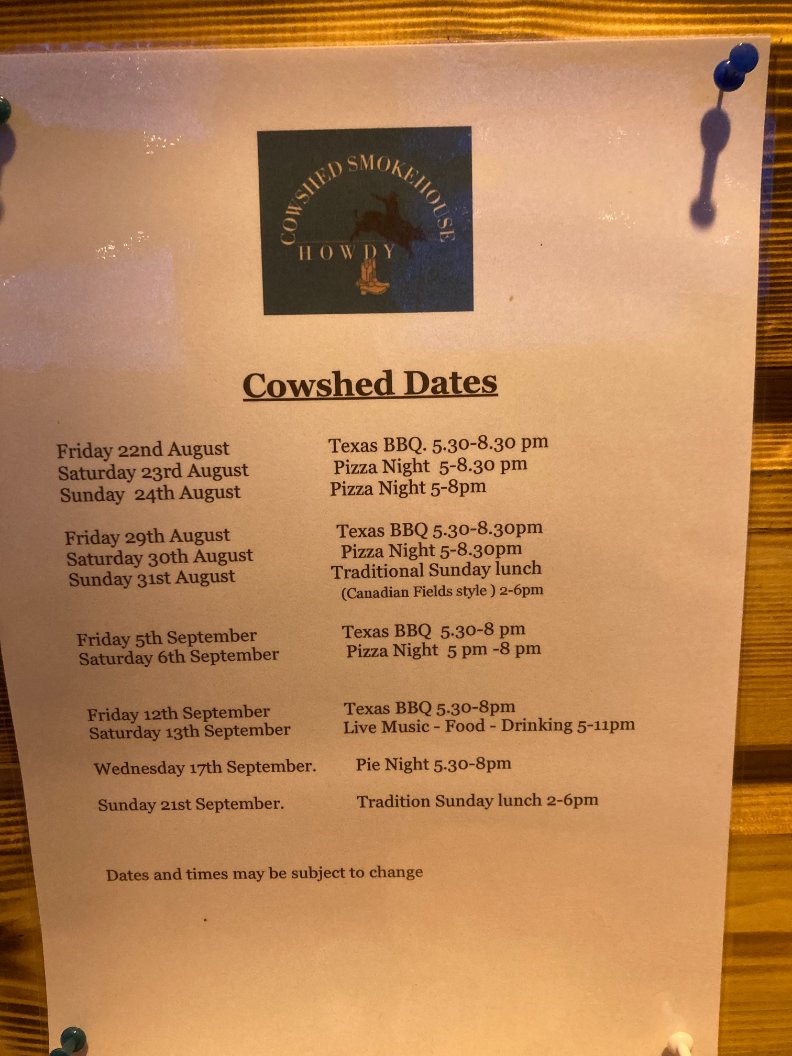 COWSHED SMOKEHOUSE
HOWDY
Cowshed Dates
Friday 22nd August Texas BBQ. 5.30-8.30 pm
Saturday 23rd August Pizza Night 5-8.30 pm
Sunday 24th August Pizza Night 5-8pm
Friday 29th August Texas BBQ 5.30-8.30pm
Saturday 30th August Pizza Night 5-8.30pm
Sunday 31st August Traditional Sunday lunch
(Canadian Fields style ) 2-6pm
Friday 5th September Texas BBQ 5.30-8 pm
Saturday 6th September Pizza Night 5 pm -8 pm
Friday 12th September Texas BBQ 5.30-8pm
Saturday 13th September Live Music - Food - Drinking 5-11pm
Wednesday 17th September. Pie Night 5.30-8pm
Sunday 21st September. Tradition Sunday lunch 2-6pm
Dates and times may be subject to change